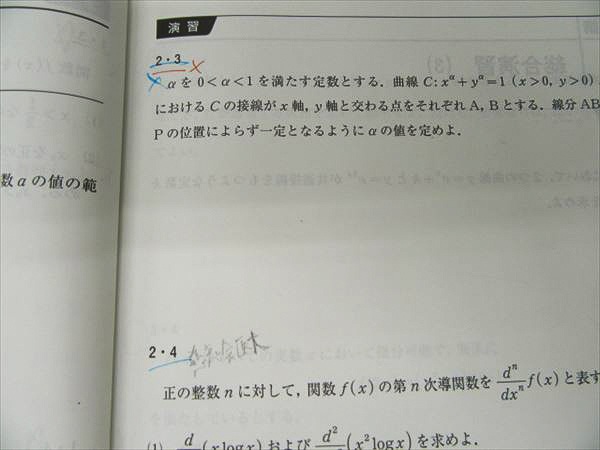 演習
2・3
αを 0<α<1 を満たす定数とする．曲線 C: x^α+y^α=1 (x>0, y>0)
における C の接線が x 軸，y 軸と交わる点をそれぞれ A, B とする．線分 AB
P の位置によらず一定となるように α の値を定めよ．
数 a の値の範
2・4
正の整数 n に対して，関数 f(x) の第 n 次導関数を d^n/dx^n f(x) と表す
(1) d/dx (x log x) および d^2/dx^2 (x^2 log x) を求めよ．